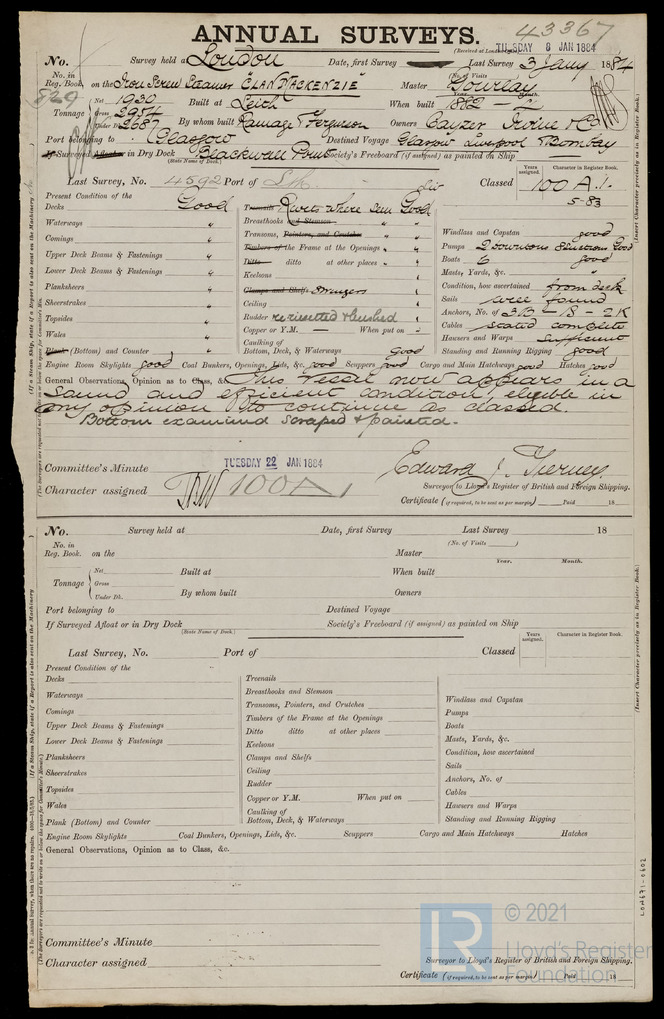 ANNUAL SURVEYS.
43367
(Received at London
TUESDAY 8 JAN 1884
No. Survey held at London Date, first Survey Last Survey 3 Jany 1884
(No. of Visits
No. in Reg. Book. on the Iron Screw Steamer "CLAN MACKENZIE" Master Gourlay
829
Year. Month.
Tonnage Net 1930 Built at Leith When built 1882 - 2
Gross 2954
Under Dk. 2687 By whom built Ramage & Ferguson Owners Cayzer Irvine & Co
Port belonging to Glasgow Destined Voyage Glasgow Liverpool & Bombay
If Surveyed Afloat or in Dry Dock Blackwall Point Society's Freeboard (if assigned) as painted on Ship
(State Name of Dock.)
Years assigned. Character in Register Book.
Last Survey, No. 4592 Port of Lth Classed 100 A.1.
5-83
Present Condition of the
Decks Good
Waterways "
Comings "
Upper Deck Beams & Fastenings "
Lower Deck Beams & Fastenings "
Planksheers "
Sheerstrakes "
Topsides "
Wales "
Plank (Bottom) and Counter "
Treenails Rivets where seen Good
Breasthooks and Stemson " "
Transoms, Pointers, and Crutches " "
Timbers of the Frame at the Openings "
Ditto ditto at other places "
Keelsons "
Clamps and Shelfs Stringers "
Ceiling "
Rudder rerivetted & bushed "
Copper or Y.M. — When put on
Caulking of
Bottom, Deck, & Waterways Good
Windlass and Capstan good
Pumps 2 Downtons & Suctions Good
Boats 6 good
Masts, Yards, &c. "
Condition, how ascertained from deck
Sails were found
Anchors, No. of 3B - 1S - 2K
Cables stated complete
Hawsers and Warps Sufficient
Standing and Running Rigging good
Engine Room Skylights good Coal Bunkers, Openings, Lids, &c. good Scuppers good Cargo and Main Hatchways good Hatches good
General Observations, Opinion as to Class, &c. This vessel now appears in a
sound and efficient condition, eligible in
my opinion to continue as classed.
Bottom examined scraped & painted.
Committee's Minute TUESDAY 22 JAN 1884
Edward J. Tierney
Surveyor to Lloyd's Register of British and Foreign Shipping.
Character assigned 100A1
Certificate (if required, to be sent as per margin) Paid 18
No. Survey held at Date, first Survey Last Survey 18
(No. of Visits )
No. in Reg. Book. on the Master
Year. Month.
Tonnage Net Built at When built
Gross
Under Dk. By whom built Owners
Port belonging to Destined Voyage
If Surveyed Afloat or in Dry Dock Society's Freeboard (if assigned) as painted on Ship
(State Name of Dock.)
Years assigned. Character in Register Book.
Last Survey, No. Port of Classed
Present Condition of the
Decks
Waterways
Comings
Upper Deck Beams & Fastenings
Lower Deck Beams & Fastenings
Planksheers
Sheerstrakes
Topsides
Wales
Plank (Bottom) and Counter
Treenails
Breasthooks and Stemson
Transoms, Pointers, and Crutches
Timbers of the Frame at the Openings
Ditto ditto at other places
Keelsons
Clamps and Shelfs
Ceiling
Rudder
Copper or Y.M. When put on
Caulking of
Bottom, Deck, & Waterways
Windlass and Capstan
Pumps
Boats
Masts, Yards, &c.
Condition, how ascertained
Sails
Anchors, No. of
Cables
Hawsers and Warps
Standing and Running Rigging
Engine Room Skylights Coal Bunkers, Openings, Lids, &c. Scuppers Cargo and Main Hatchways Hatches
General Observations, Opinion as to Class, &c.
Committee's Minute
Surveyor to Lloyd's Register of British and Foreign Shipping.
Character assigned
Certificate (if required, to be sent as per margin) Paid 18
(Insert Character precisely as in Register Book.)
(Insert Character precisely as in Register Book.)
LRF671-0602
© 2021
Lloyd's Register
Foundation